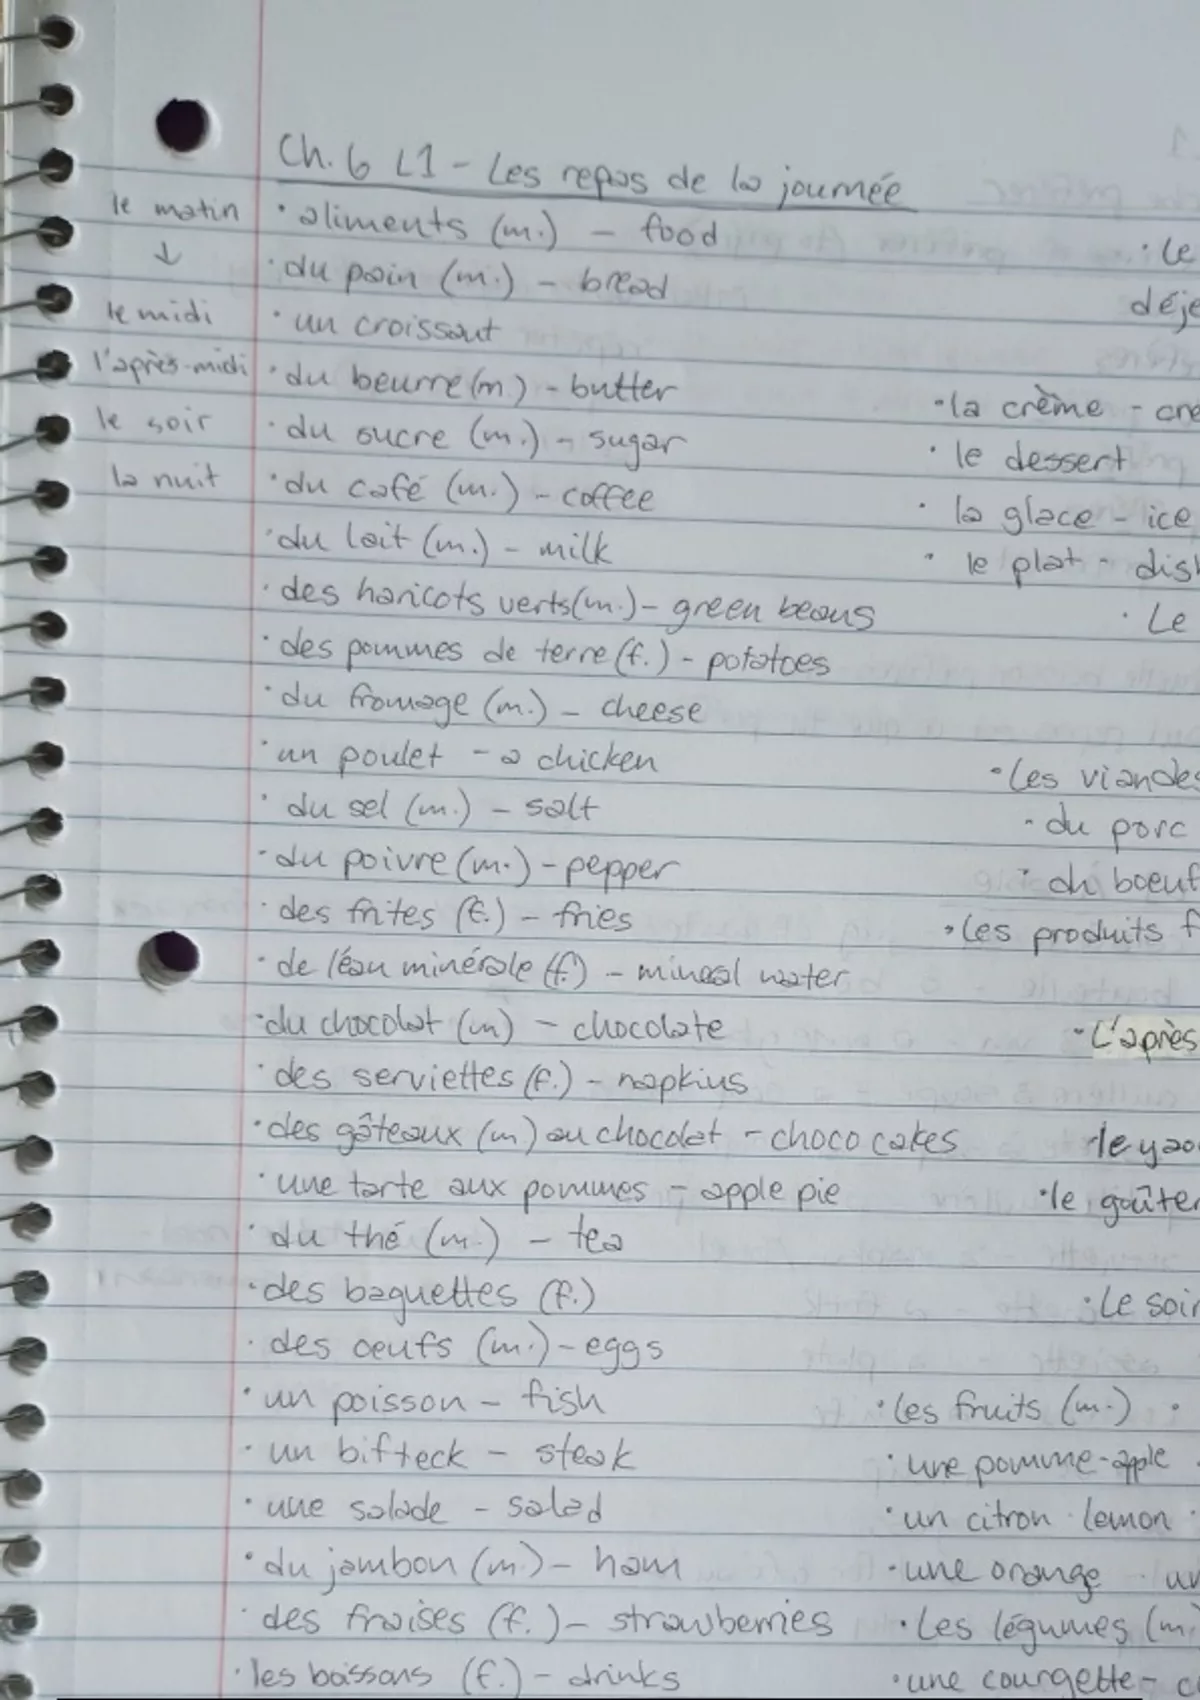 Ch. 6 L1 - Les repas de la journée
le matin
↓
le midi
l'après-midi
le soir
la nuit
· aliments (m.) - food
· du pain (m.) - bread
· un croissant
· du beurre (m.) - butter
· du sucre (m.) - sugar
· du café (m.) - coffee
· du lait (m.) - milk
· des haricots verts (m.) - green beans
· des pommes de terre (f.) - potatoes
· du fromage (m.) - cheese
· un poulet - a chicken
· du sel (m.) - salt
· du poivre (m.) - pepper
· des frites (f.) - fries
· de l'éau minérale (f.) - mineral water
· du chocolat (m) - chocolate
· des serviettes (f.) - napkins
· des gâteaux (m) au chocolat - choco cakes
· une tarte aux pommes - apple pie
· du thé (m.) - tea
· des baguettes (f.)
· des oeufs (m.) - eggs
· un poisson - fish
· un bifteck - steak
· une salade - salad
· du jambon (m.) - ham
· des fraises (f.) - strawberries
· les boissons (f.) - drinks
· Le
déje
· la crème - cre
· le dessert
· la glace - ice
· le plat - dish
· Le
· Les viandes
· du porc
· du boeuf
· Les produits f
· L'après
· le yao
· le goûter
· Le soir
· Les fruits (m.) ·
· une pomme - apple
· un citron - lemon ·
· une orange · un
· Les légumes (m.
· une courgette - c